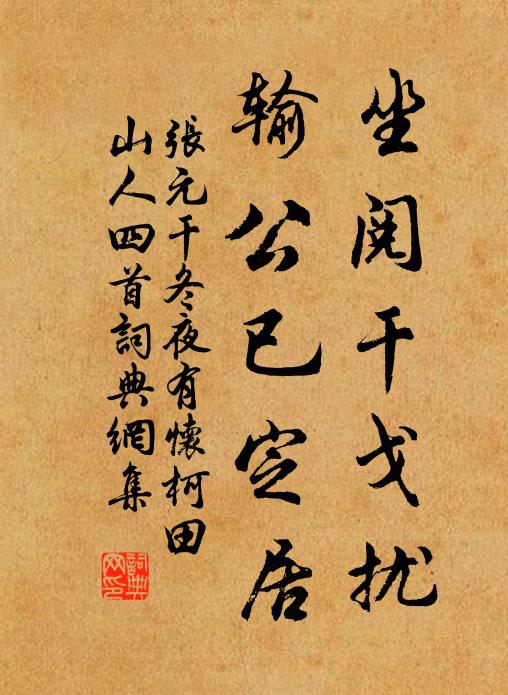 坐閱干戈扰
輸公已定居
張元干冬夜有懷柯田
山人四首詞典網集
詞典
网印